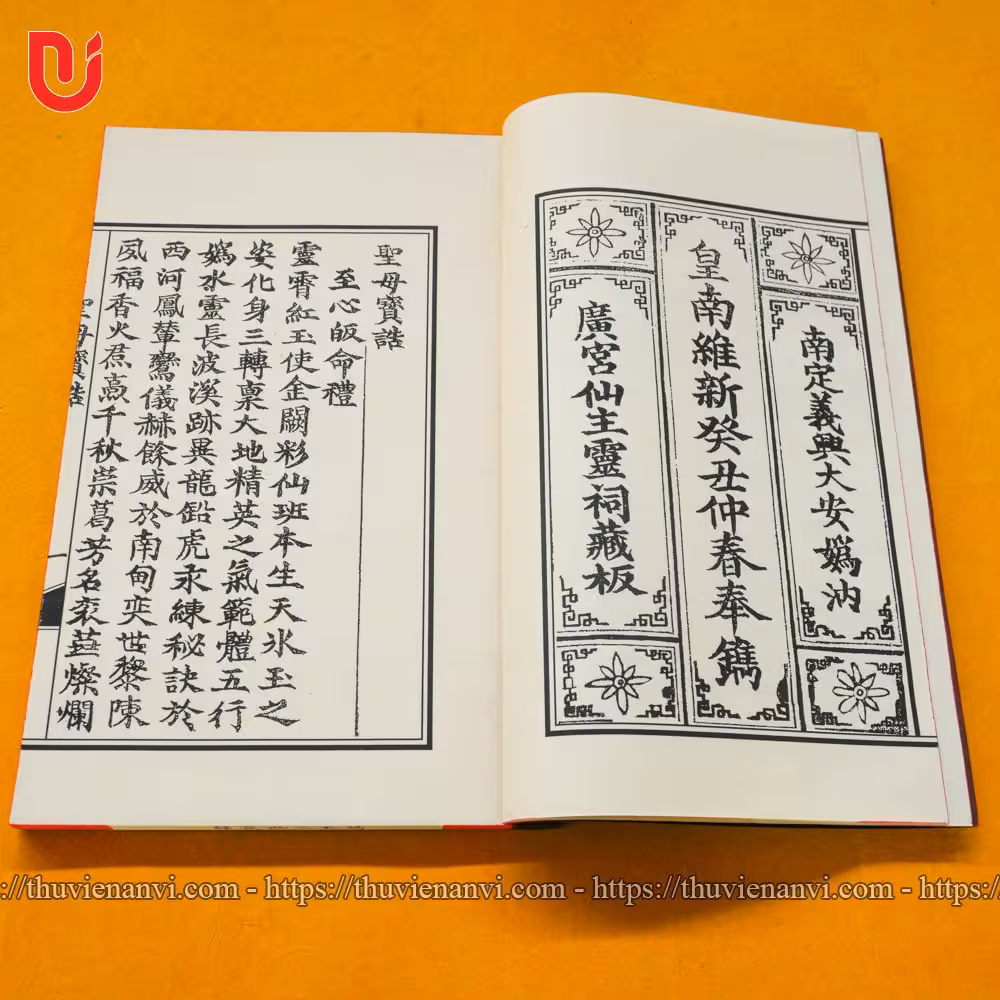 南定義興大安嬀汭
皇南維新癸丑仲春奉鐫
廣宮仙主靈祠藏板
聖母寶誥
至心皈命禮
靈霄紅玉使金闕彩仙班本生天氷玉之
姿化身三轉稟大地精英之氣範體五行
嬀水靈長波溪跡異龍鉛虎汞練秘訣於
西河鳳輦鸞儀赫餘威於南甸奕世黎陳
夙福香火焄千秋葛芳名衮燦爛
聖母寶誥
://thuvienanvi.com - https://thuvienanvi.com - https://thuvienanvi.com - https://